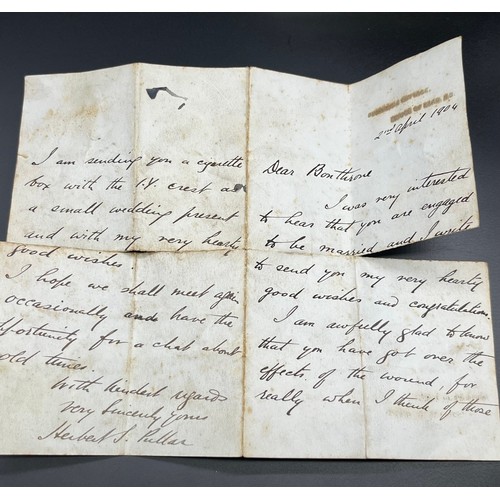 2nd April 1904
Dear Bonthrone
I was very interested
to hear that you are engaged
to be married and I write
to send you my very hearty
good wishes and congratulations.
I am awfully glad to know
that you have got over the
effects of the wound, for
really when I think of those
I am sending you a cigarette
box with the I.Y. crest as
a small wedding present
and with my very hearty
good wishes.
I hope we shall meet again
occasionally and have the
opportunity for a chat about
old times.
With kindest regards
Very Sincerely yours
Herbert S. Pullar